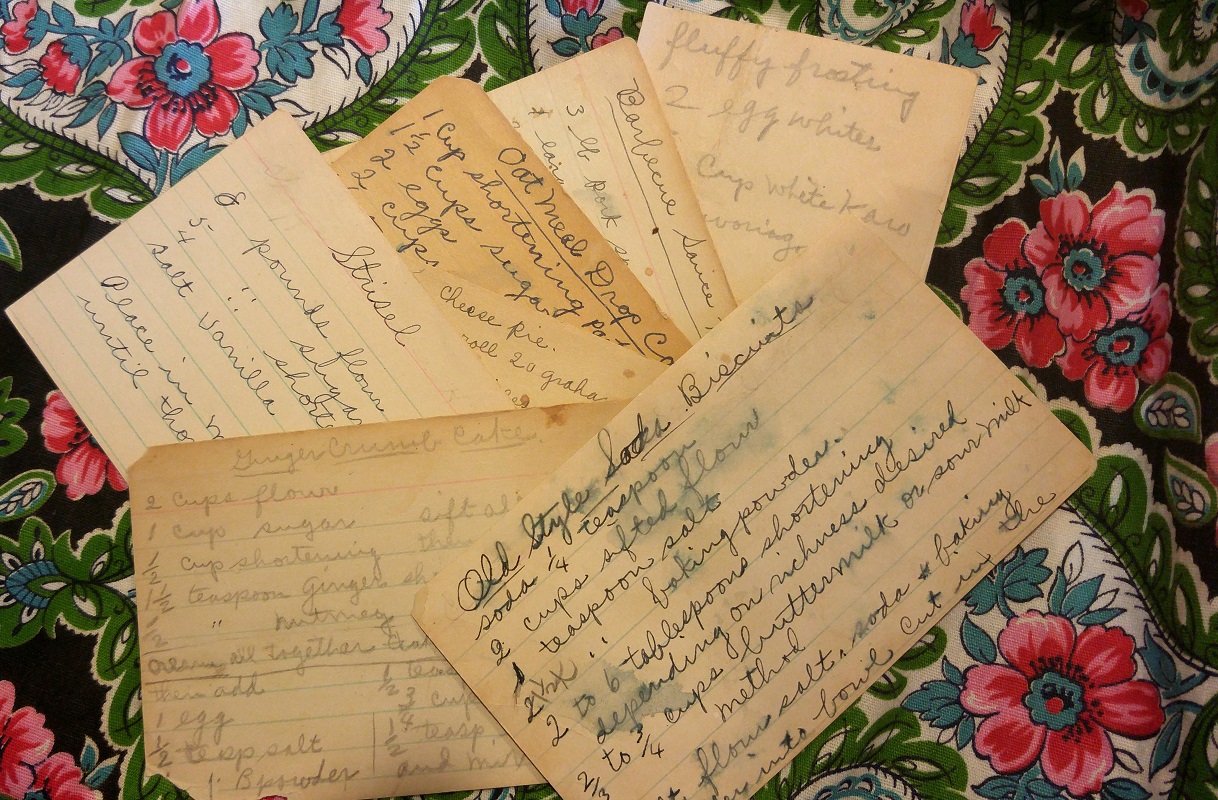 fluffy frosting
2 egg whites
Cup White Karo
Barbecue Sauce
3 lb pork
Oat Meal Drop
1 Cup shortening
1½ cups sugar
2 eggs
2 cups
Cheese Pie.
roll 20 graha
Strisel
8 pounds flour
5 " sugar
4 " short
salt Vanilla
Place in
until
Ginger Crumb Cake
2 cups flour
1 cup sugar
sift al
½ cup shortening
1½ teaspoon Ginger
½ " nutmeg
cream all together
then add
1 egg
½ teasp salt
1 " Bpowder
½
¾ cup
1/4 teasp
½
and mil
Old Style Soda Biscuits
soda ¼ teaspoon
2 cups sifted flour
1 teaspoon salt
2 " baking powder.
2 to 6 tablespoons shortening
depending on richness desired
2/3 to ¾ cups buttermilk or sour milk
method
flour salt, soda & baking
into bowl cut in the